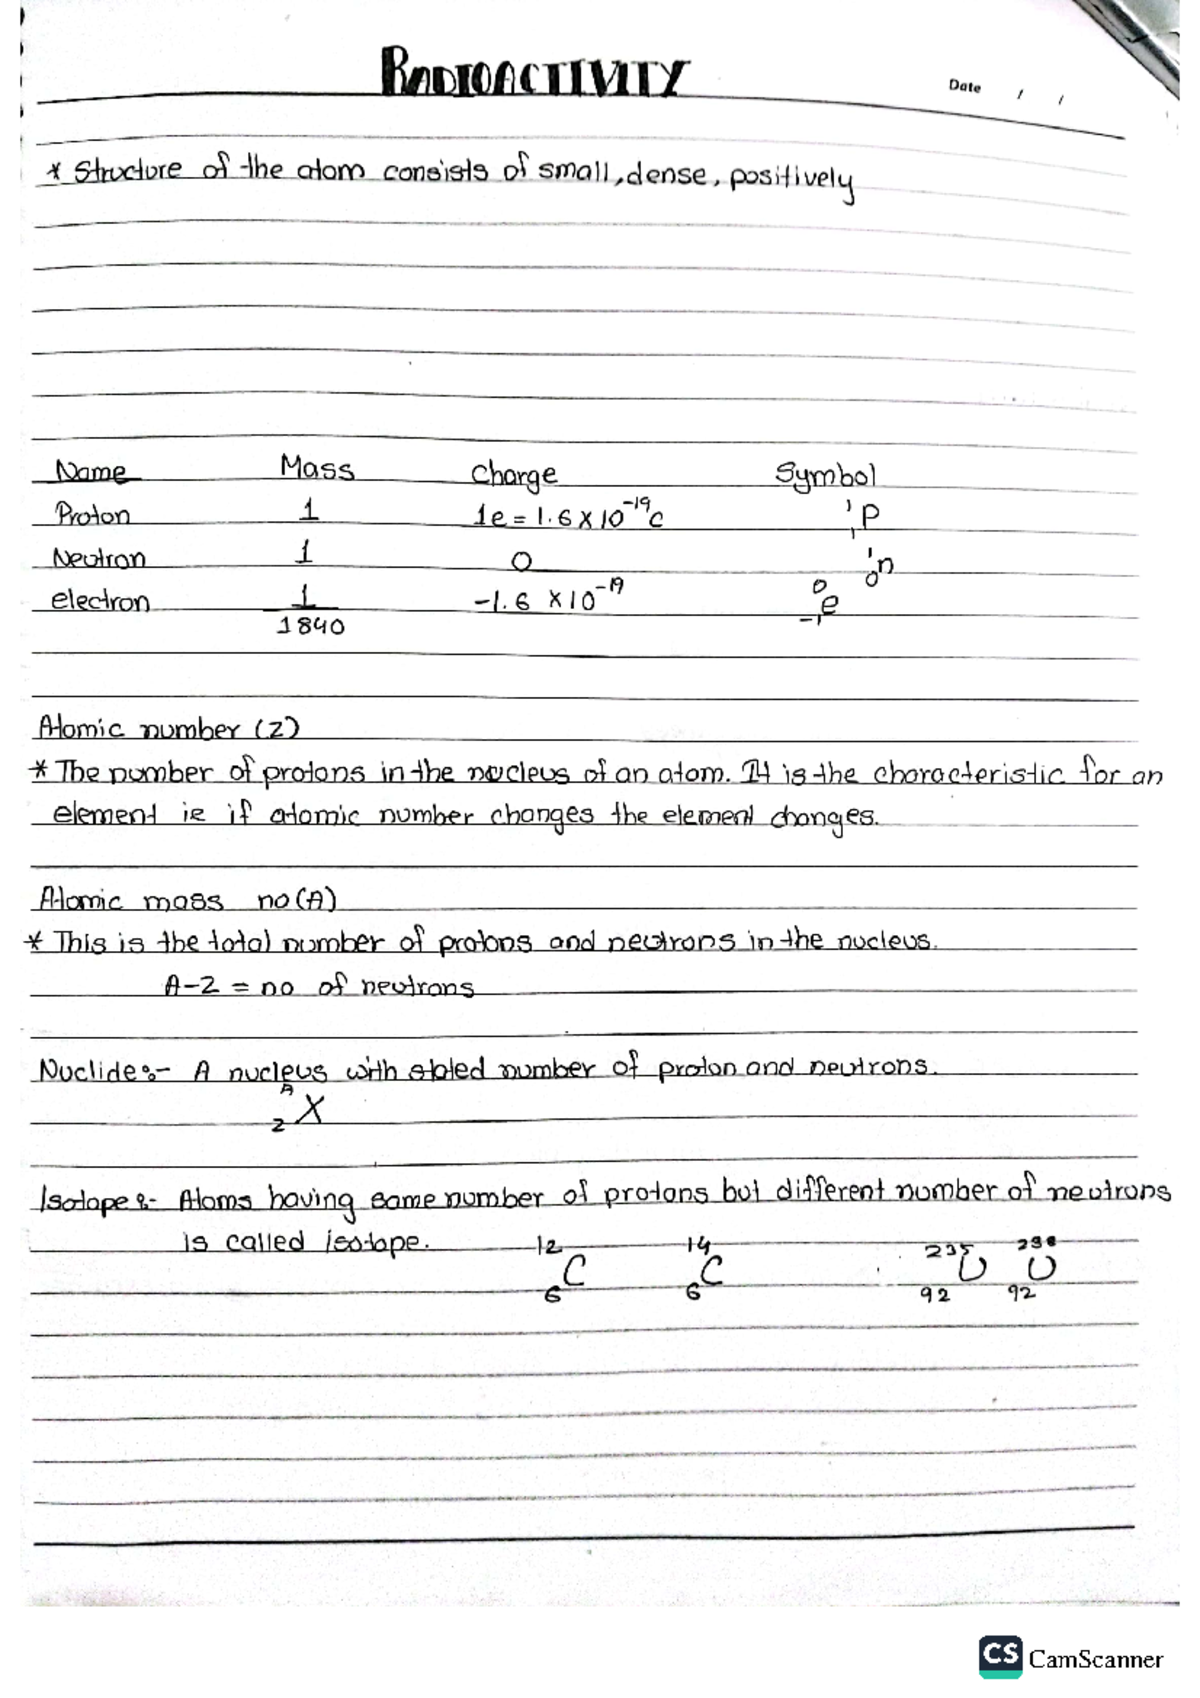 RADIOACTIVITY
Date / /
* Structure of the atom consists of small, dense, positively
Name Mass Charge Symbol
Proton 1 1e = 1.6 x 10⁻¹⁹C ¹₁P
Neutron 1 0 ¹₀n
electron 1/1840 -1.6 x 10⁻¹⁹ ⁰₋₁e
Atomic number (Z)
* The number of protons in the nucleus of an atom. It is the characteristic for an
element ie if atomic number changes the element changes.
Atomic mass no (A)
* This is the total number of protons and neutrons in the nucleus.
A-Z = no of neutrons
Nuclide:- A nucleus with stated number of proton and neutrons.
ᴬ_Z X
Isotope:- Atoms having same number of protons but different number of neutrons
is called isotope. ¹²₆C ¹⁴₆C ²³⁵₉₂U ²³⁸₉₂U
CS CamScanner